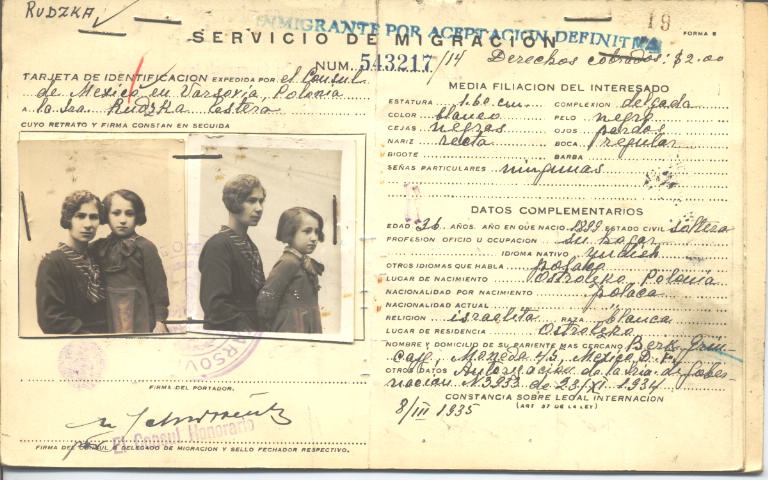 RUDZKA
INMIGRANTE POR ACEPTACION DEFINITIVA
19
SERVICIO DE MIGRACION
FORMA 5
NUM. 543217/14 Derechos cobrados: $2.00
TARJETA DE IDENTIFICACION EXPEDIDA POR el Consul
de Mexico en Varsovia, Polonia
A la Sra Rudzka Estera
CUYO RETRATO Y FIRMA CONSTAN EN SEGUIDA
FIRMA DEL PORTADOR.
El Consul Honorario
FIRMA DEL CONSUL O DELEGADO DE MIGRACION Y SELLO FECHADOR RESPECTIVO.
MEDIA FILIACION DEL INTERESADO
ESTATURA 1.60 cm. COMPLEXION delgada
COLOR blanco PELO negro
CEJAS negras OJOS pardos
NARIZ recta BOCA regular
BIGOTE BARBA
SEÑAS PARTICULARES ningunas
DATOS COMPLEMENTARIOS
EDAD 36 AÑOS. AÑO EN QUE NACIO 1899 ESTADO CIVIL soltera
PROFESION OFICIO U OCUPACION su hogar
IDIOMA NATIVO yudish
OTROS IDIOMAS QUE HABLA polaco
LUGAR DE NACIMIENTO Polonia
NACIONALIDAD POR NACIMIENTO polaca
NACIONALIDAD ACTUAL
RELIGION israelita RAZA blanca
LUGAR DE RESIDENCIA
NOMBRE Y DOMICILIO DE SU PARIENTE MAS CERCANO Berk
Moneda 45, Mexico D. F.
OTROS DATOS Autorizacion de la Sria. de Gober-
nacion N. 3933 de 23/XI 1934
CONSTANCIA SOBRE LEGAL INTERNACION
(ART 37 DE LA LEY)
8/III 1935